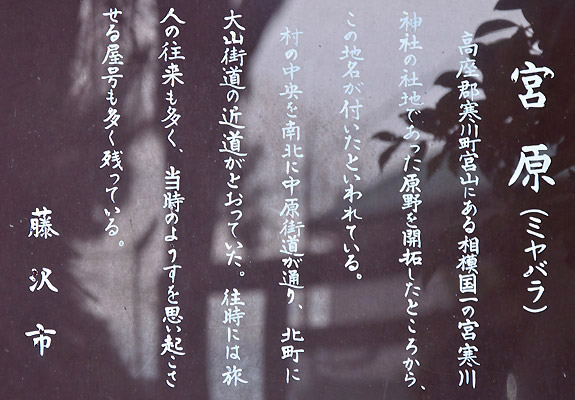 宮原(ミヤバラ)
高座郡寒川町宮山にある相模国一の宮寒川
神社の社地であった原野を開拓したところから、
この地名が付いたといわれている。
村の中央を南北に中原街道が通り、北町に
大山街道の近道がとおっていた。往時には旅
人の往来も多く、当時のようすを思い起こさ
せる屋号も多く残っている。
藤沢市